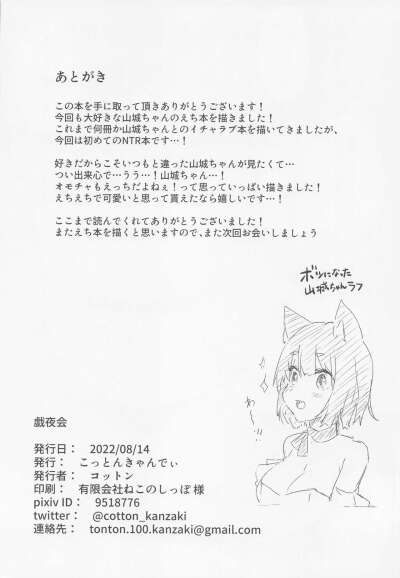 あとがき
この本を手に取って頂きありがとうございます！
今回も大好きな山城ちゃんのえち本を描きました！
これまで何冊か山城ちゃんとのイチャラブ本を描いてきましたが、
今回は初めてのNTR本です…！
好きだからこそいつもと違った山城ちゃんが見たくて…
つい出来心で…うう…！山城ちゃん…！
オモチャもえっちだよねぇ！って思っていっぱい描きました！
えちえちで可愛いと思って貰えたなら嬉しいです…！
ここまで読んでくれてありがとうございました！
またえち本を描くと思いますので、また次回お会いしましょう
ボツになった
山城ちゃんラフ
戯夜会
発行日： 2022/08/14
発行： こっとんきゃんでぃ
発行者： コットン
印刷： 有限会社ねこのしっぽ 様
pixiv ID： 9518776
twitter： @cotton_kanzaki
連絡先： tonton.100.kanzaki@gmail.com